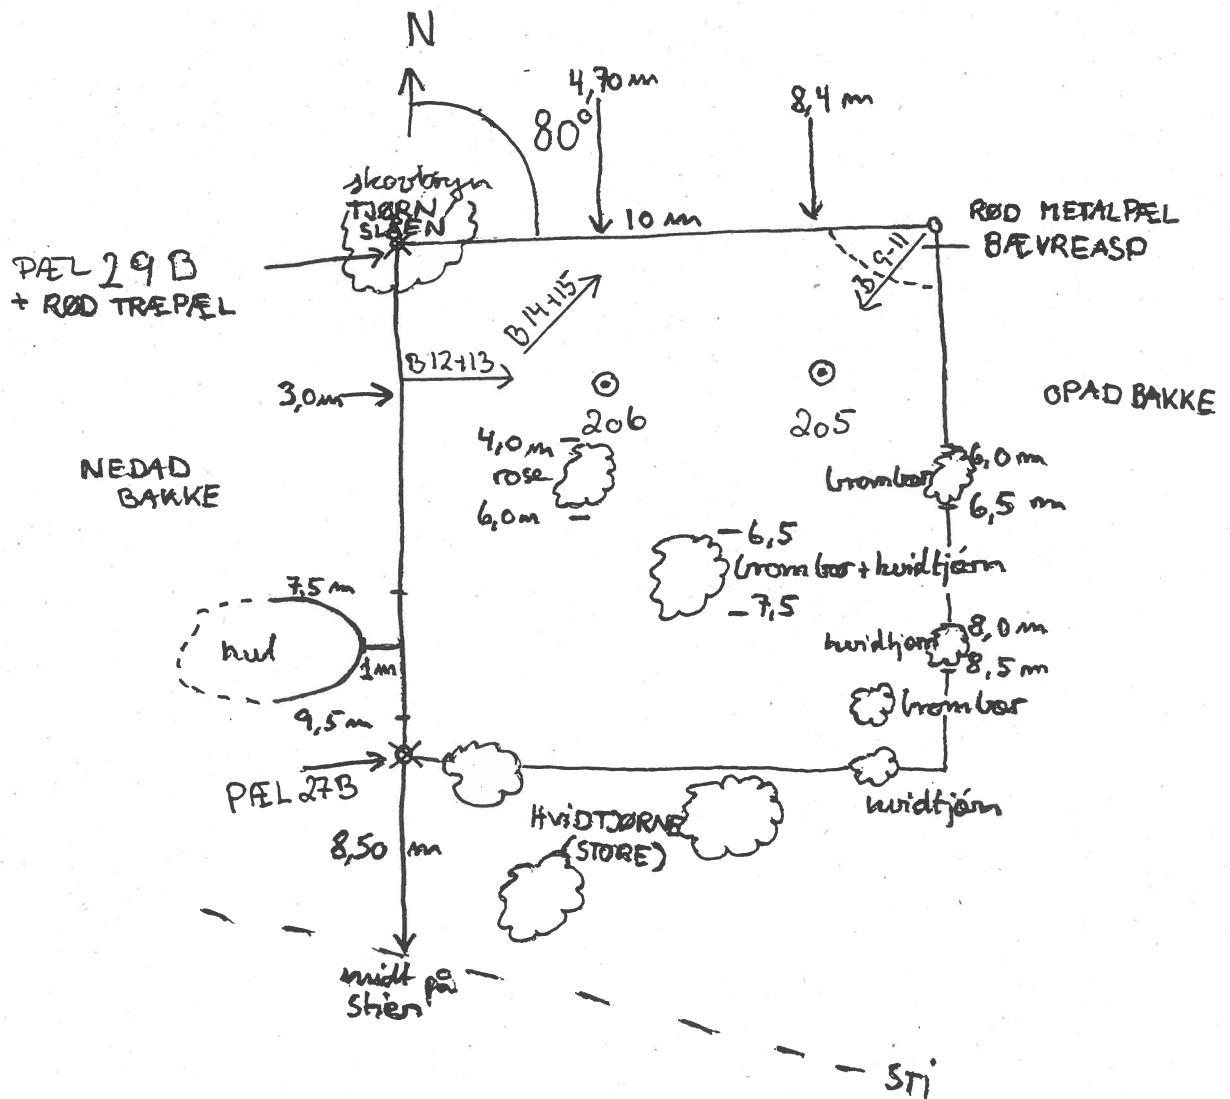 N
4,70 m
8,4 m
80°
skovbryn
TJØRN
SLÅEN
10 m
RØD METALPÆL
BÆVREASP
PÆL 29 B
+ RØD TRÆPÆL
B 9-11
B 14+15
B 12+13
3,0 m
206
205
OPAD BAKKE
NEDAD
BAKKE
4,0 m
rose
6,0 m
brombær
6,0 m
6,5 m
6,5
brombær + hvidtjørn
7,5
7,5 m
hul
1 m
9,5 m
hvidtjørn
8,0 m
8,5 m
brombær
PÆL 27B
hvidtjørn
HVIDTJØRNE
(STORE)
8,50 m
midt på
stien
STI